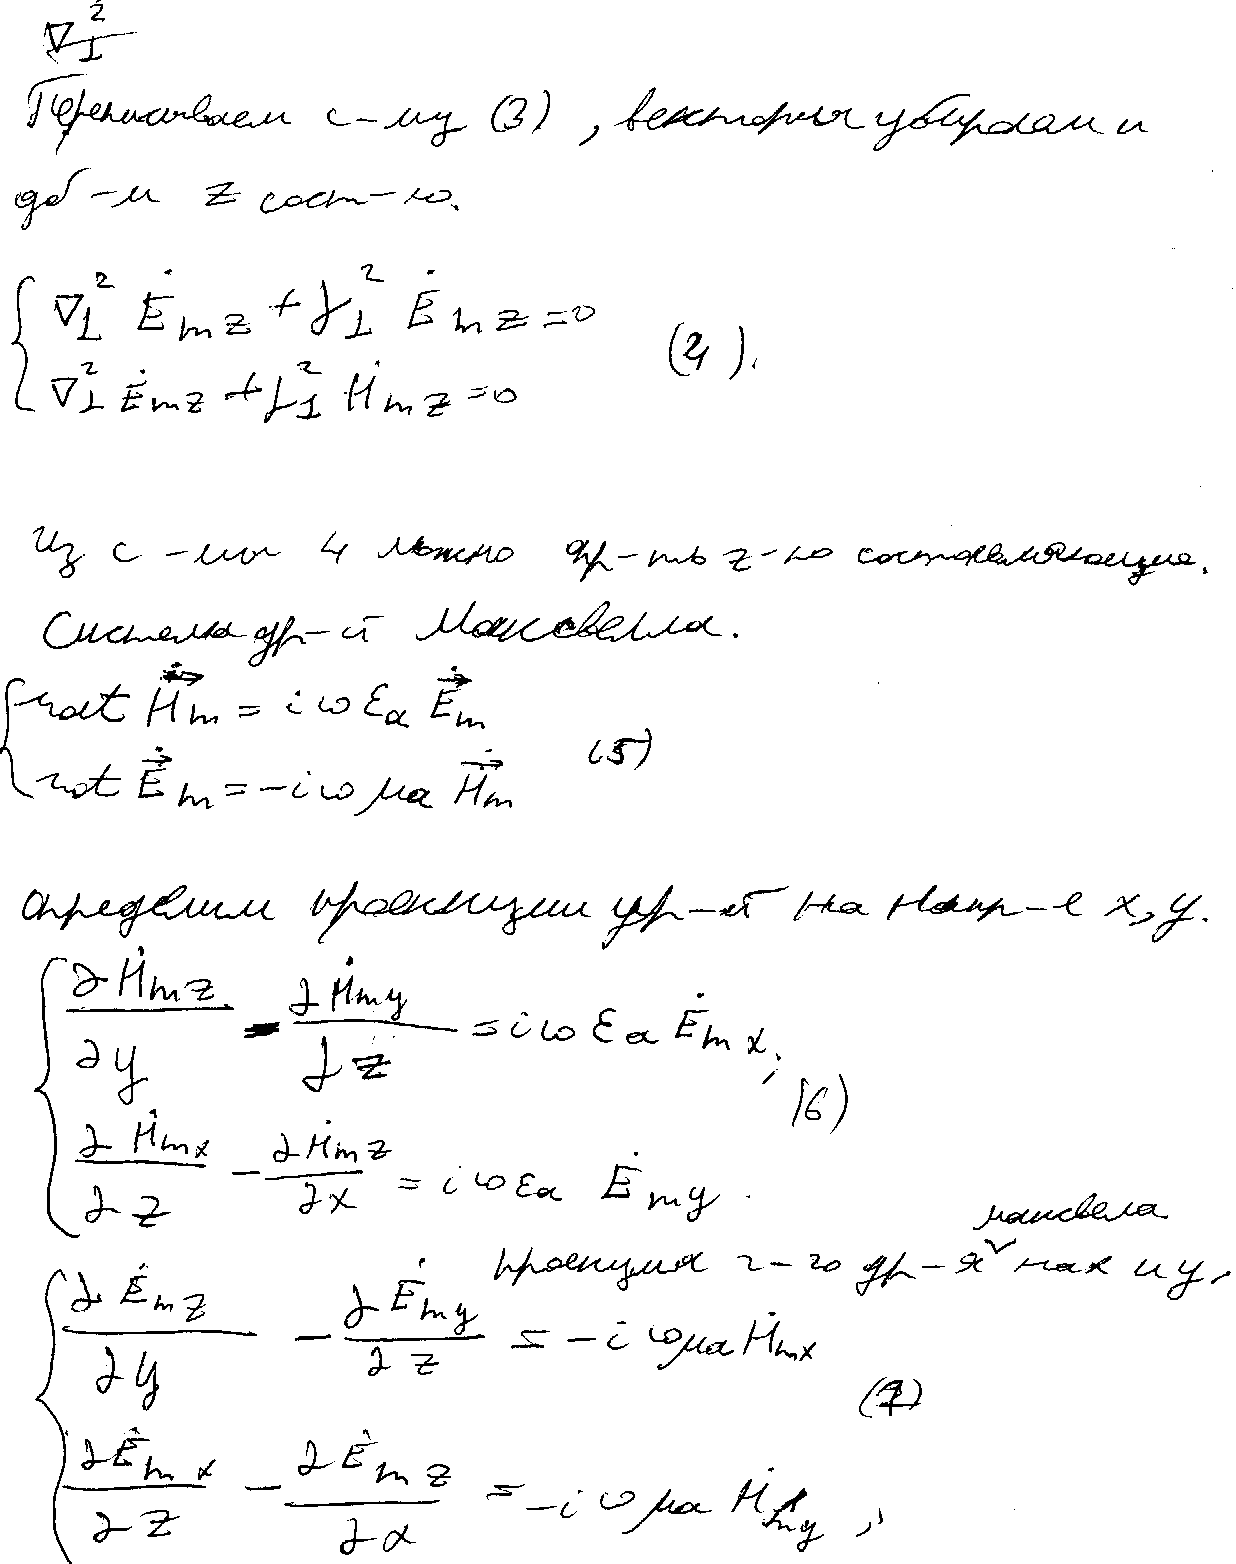 ∇⊥²
Переписываем с-му (3), векторы убираем и
дб-м z сост-ю.
{ ∇⊥² Ėmz + γ⊥² Ėmz = 0
∇⊥² Ėmz + γ⊥² Ḣmz = 0 (4).
Из с-мы 4 можно опр-ть z-ю составляющие.
Система ур-й Максвелла.
{ rot Ḣm = iωεa Ėm
rot Ėm = -iωμa Ḣm (5)
Определим проекции ур-й на напр-е x, y.
{ ∂Ḣmz/∂y - ∂Ḣmy/∂z = iωεa Ėmx;
∂Ḣmx/∂z - ∂Ḣmz/∂x = iωεa Ėmy. (6)
максвела
проекция 2-го ур-я на x и y,
{ ∂Ėmz/∂y - ∂Ėmy/∂z = -iωμa Ḣmx
∂Ėmx/∂z - ∂Ėmz/∂x = -iωμa Ḣmy, (7)